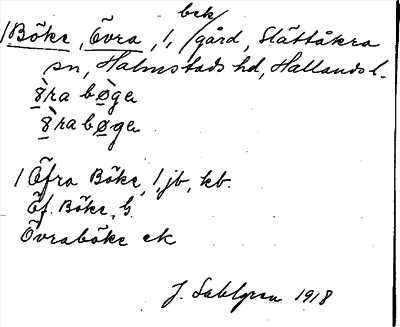 bek
1 Böke, Övra, 1, /gård, Slättåkra
sn, Halmstads hd, Hallands l.
8̀ra bøgə
8̀rabøgə
1 Öfra Böke, 1, jb, kb.
Öf. Böke, G.
Övraböke ek
J. Sahlgren 1918